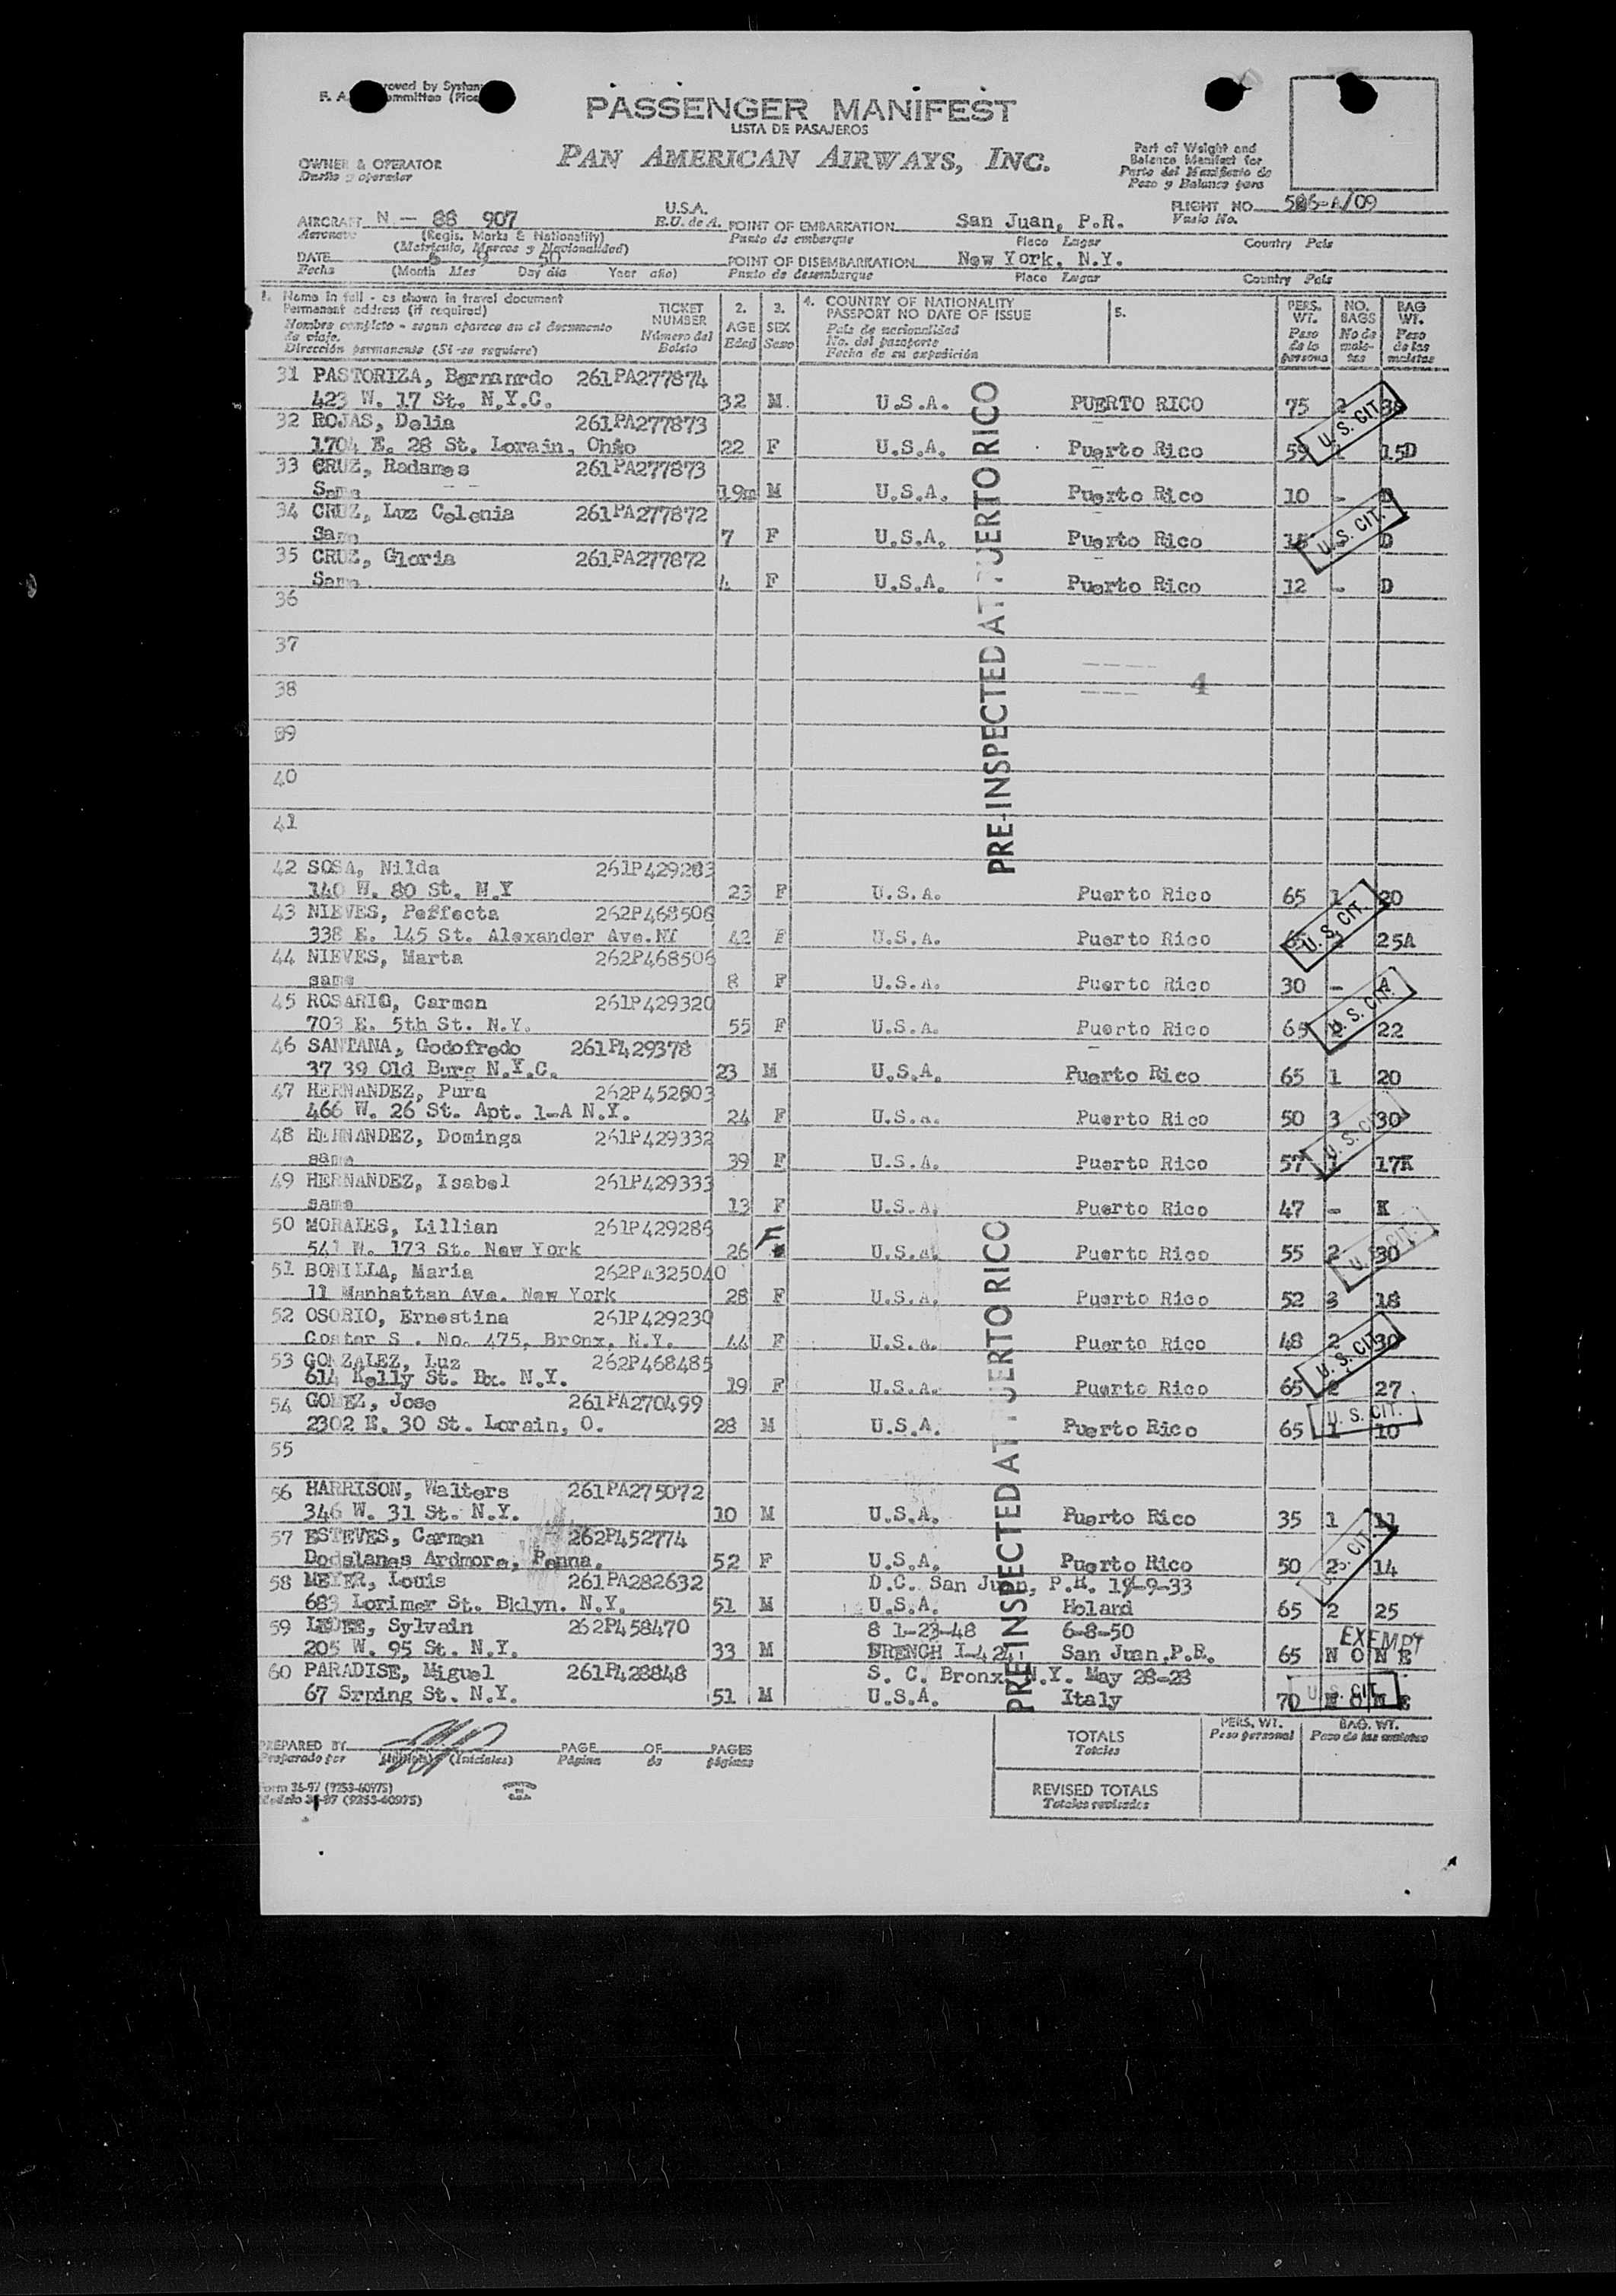 PASSENGER MANIFEST
LISTA DE PASAJEROS
PAN AMERICAN AIRWAYS, INC.
OWNER & OPERATOR
Dueño y operador
Part of Weight and
Balance Manifest for
Parte del Manifiesto de
Peso y Balance para
FLIGHT NO. 526-A/09
Vuelo No.
AIRCRAFT N - 88 907 U.S.A. E.U. de A.
Aeronave (Regis. Marks & Nationality)
(Matrícula, Marcas y Nacionalidad)
POINT OF EMBARKATION San Juan, P.R.
Punto de embarque Place Lugar Country País
DATE 6 9 50
Fecha (Month Mes Day día Year año)
POINT OF DISEMBARKATION New York, N.Y.
Punto de desembarque Place Lugar Country País
1. Name in full - as shown in travel document
Permanent address (if required)
Nombre completo - segun aparece en el documento
de viaje.
Dirección permanente (Si se requiere)
TICKET NUMBER Número del Boleto
2. AGE Edad
3. SEX Sexo
4. COUNTRY OF NATIONALITY
PASSPORT NO DATE OF ISSUE
País de nacionalidad
No. del pasaporte
Fecha de su expedición
5.
PERS. WT. Peso de la persona
NO. BAGS No de maletas
BAG WT. Peso de las maletas
31 PASTORIZA, Bernanrdo 261PA277874
423 W. 17 St. N.Y.C. 32 M U.S.A. PUERTO RICO 75 2
32 ROJAS, Delia 261PA277873
1704 E. 28 St. Lorain, Ohio 22 F U.S.A. Puerto Rico 59 15D
33 CRUZ, Radames 261PA277873
Same 19m M U.S.A. Puerto Rico 10 - D
34 CRUZ, Luz Celenia 261PA277872
Same 7 F U.S.A. Puerto Rico 15 - D
35 CRUZ, Gloria 261PA277872
Same 4 F U.S.A. Puerto Rico 12 - D
36
37
38 4
39
40
41
42 SOSA, Nilda 261P429283
140 W. 80 St. N.Y 23 F U.S.A. Puerto Rico 65 1 20
43 NIEVES, Peffecta 262P468506
338 E. 145 St. Alexander Ave.NY 42 F U.S.A. Puerto Rico 65 25A
44 NIEVES, Marta 262P468506
same 8 F U.S.A. Puerto Rico 30 - A
45 ROSARIO, Carmen 261P429320
703 E. 5th St. N.Y. 55 F U.S.A. Puerto Rico 65 2 22
46 SANTANA, Godofredo 261P429378
37 39 Old Burg N.Y.C. 23 M U.S.A. Puerto Rico 65 1 20
47 HERNANDEZ, Pura 262P452603
466 W. 26 St. Apt. 1-A N.Y. 24 F U.S.a. Puerto Rico 50 3 30
48 HERNANDEZ, Dominga 261P429332
same 39 F U.S.A. Puerto Rico 57 1 17K
49 HERNANDEZ, Isabel 261P429333
same 13 F U.S.A. Puerto Rico 47 - K
50 MORALES, Lillian 261P429286
541 W. 173 St. New York 26 F U.S.A. Puerto Rico 55 2 30
51 BONILLA, Maria 262PA325040
11 Manhattan Ave. New York 28 F U.S.A. Puerto Rico 52 3 18
52 OSORIO, Ernestina 261P429230
Coster S . No. 475, Bronx, N.Y. 44 F U.S.a. Puerto Rico 48 2 30
53 GONZALEZ, Luz 262P468485
614 Kelly St. Bx. N.Y. 19 F U.S.A. Puerto Rico 65 2 27
54 GOMEZ, Jose 261PA270499
2302 E. 30 St. Lorain, O. 28 M U.S.A. Puerto Rico 65 1 10
55
56 HARRISON, Walters 261PA275072
346 W. 31 St. N.Y. 10 M U.S.A. Puerto Rico 35 1 11
57 ESTEVES, Carmen 262P452774
Dodslanes Ardmore, Penna. 52 F U.S.A. Puerto Rico 50 2 14
58 MEYER, Louis 261PA282632 D.C. San Juan, P.R.
683 Lorimer St. Bklyn. N.Y. 51 M U.S.A. Holand 65 2 25
59 Sylvain 262P458470 8 1-23-48 6-8-50
205 W. 95 St. N.Y. 33 M FRENCH I-424 San Juan.P.R. 65 NONE
EXEMPT
60 PARADISE, Miguel 261P428848 S. C. Bronx, N.Y. May 28-28
67 Srping St. N.Y. 51 M U.S.A. Italy 70 NONE
PRE-INSPECTED AT PUERTO RICO
PRE-INSPECTED AT PUERTO RICO
U. S. CIT.
U. S. CIT.
U. S. CIT.
U. S. CIT.
U. S. CIT.
U. S. CIT.
U. S. CIT.
U. S. CIT.
U. S. CIT.
U. S. CIT.
PREPARED BY (Initials) (Iniciales)
Preparado por
PAGE OF PAGES
Página de páginas
TOTALS
Totales
PERS. WT.
Peso personal
BAG. WT.
Peso de las maletas
REVISED TOTALS
Totales revisados
Form 36-97 (9253-60975)
Modelo 36-97 (9253-60975)